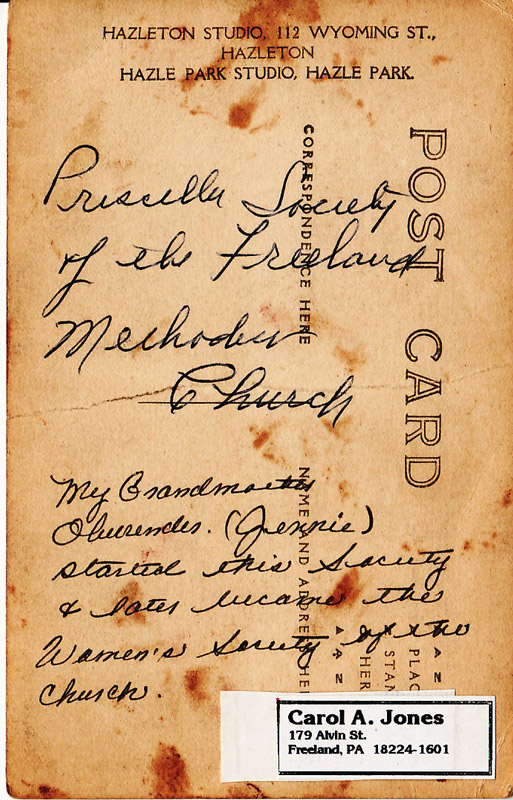 HAZLETON STUDIO, 112 WYOMING ST.,
HAZLETON
HAZLE PARK STUDIO, HAZLE PARK.
POST CARD
CORRESPONDENCE HERE
Priscilla Society
of the Freeland
Methodist
Church
My Grandmother
(Jennie)
started this Society
& later became the
Women's Society of the
Church.
NAME AND ADDRE HE
PLAC
STAM
HER
Carol A. Jones
179 Alvin St.
Freeland, PA 18224-1601